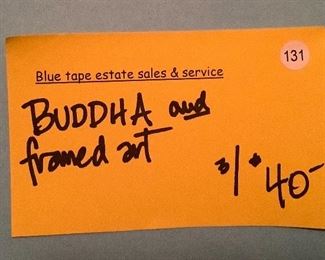 131
Blue tape estate sales & service
BUDDHA and
framed art
$40-